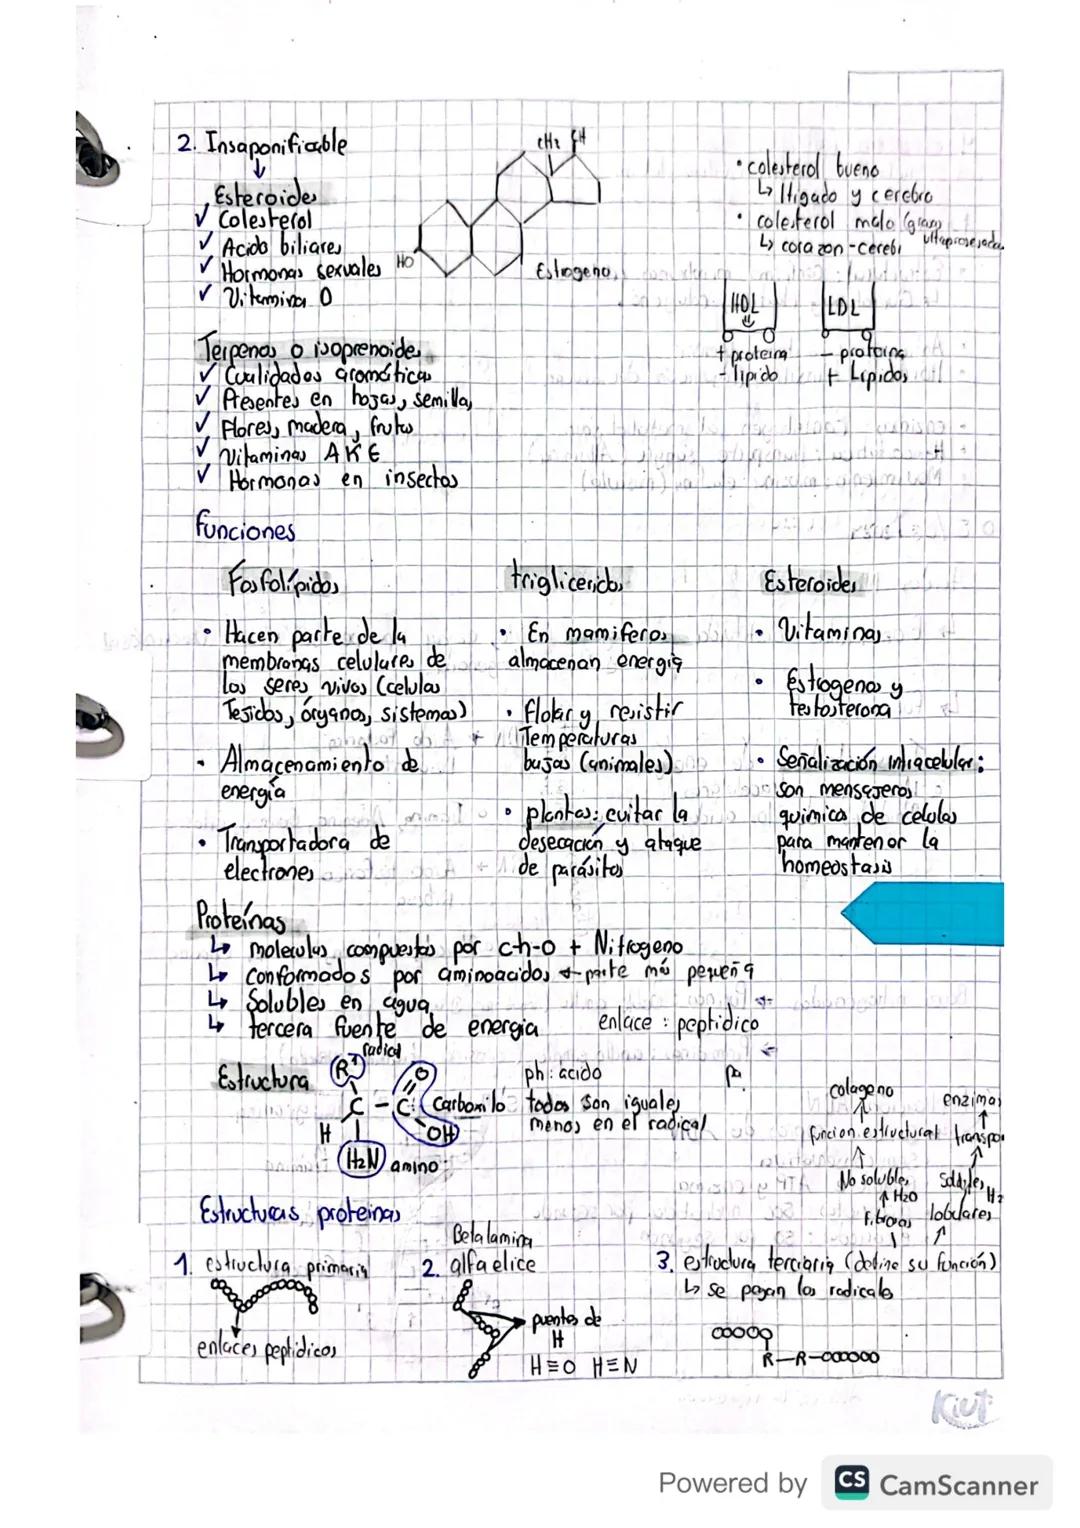 2. Insaponificable
↓
Esteroides
✓ Colesterol
✓ Acido biliares
✓ Hormonas sexuales
✓ Vitamina D
CH3 OH
HO
Estrogeno
• colesterol bueno
↳ Higado y cerebro
• colesterol malo (grasas ultraprosesadas
↳ corazon-cerebr
HDL
+ proteina
- lipido
LDL
- proteina
+ Lipidos
Terpenos o isoprenoides
✓ Cualidades aromáticas
✓ Presentes en hojas, semillas,
✓ Flores, madera, frutos
✓ Vitaminas A K E
✓ Hormonas en insectos
funciones
Fosfolípidos
• Hacen parte de la
membranas celulares de
los seres vivos (celulas
Tejidos, órganos, sistemas)
• Almacenamiento de
energía
• Transportadora de
electrones
trigliceridos
• En mamiferos
almacenan energia
• flotar y resistir
Temperaturas
bajas (animales)
• plantas: evitar la
desecación y ataque
de parásitos
Esteroides
• Vitaminas
• Estrogenos y
testosterona
• Señalización intracelular:
son mensajeros
quimicos de celulas
para mantener la
homeostasis
Proteínas
↳ moleculas compuestas por c-h-o + Nitrogeno
↳ conformados por aminoacidos ← parte más pequeña
↳ Solubles en agua
↳ tercera fuente de energia
enlace : peptidico
Estructura
radical
R
C - C
O
OH
Carboxilo
H
H2N amino
ph: acido
todos son iguales
menos en el radical
colageno
↑
funcion estructural
↑
No solubles
↑ H2O
Fibrosas
enzimas
↑
transpor
↑
Solubles H2
lobulares
↑
Estructuras proteinas
1. estructura primaria
enlaces peptidicos
Betalamina
2. alfaelice
puentes de
H
H≡O H≡N
3. estructura terciaria (define su función)
↳ se pegan los radicales
R-R
Kiut
Powered by CS CamScanner